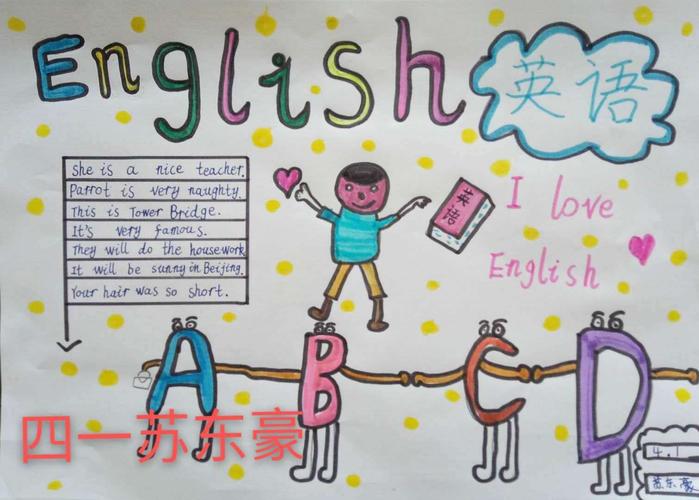 English
英语
She is a nice teacher.
Parrot is very naughty.
This is Tower Bridge.
It's very famous.
They will do the housework
It will be sunny in Beijing.
Your hair was so short.
英语
I love
English
A B C D
四一苏东豪
4.1
苏东豪